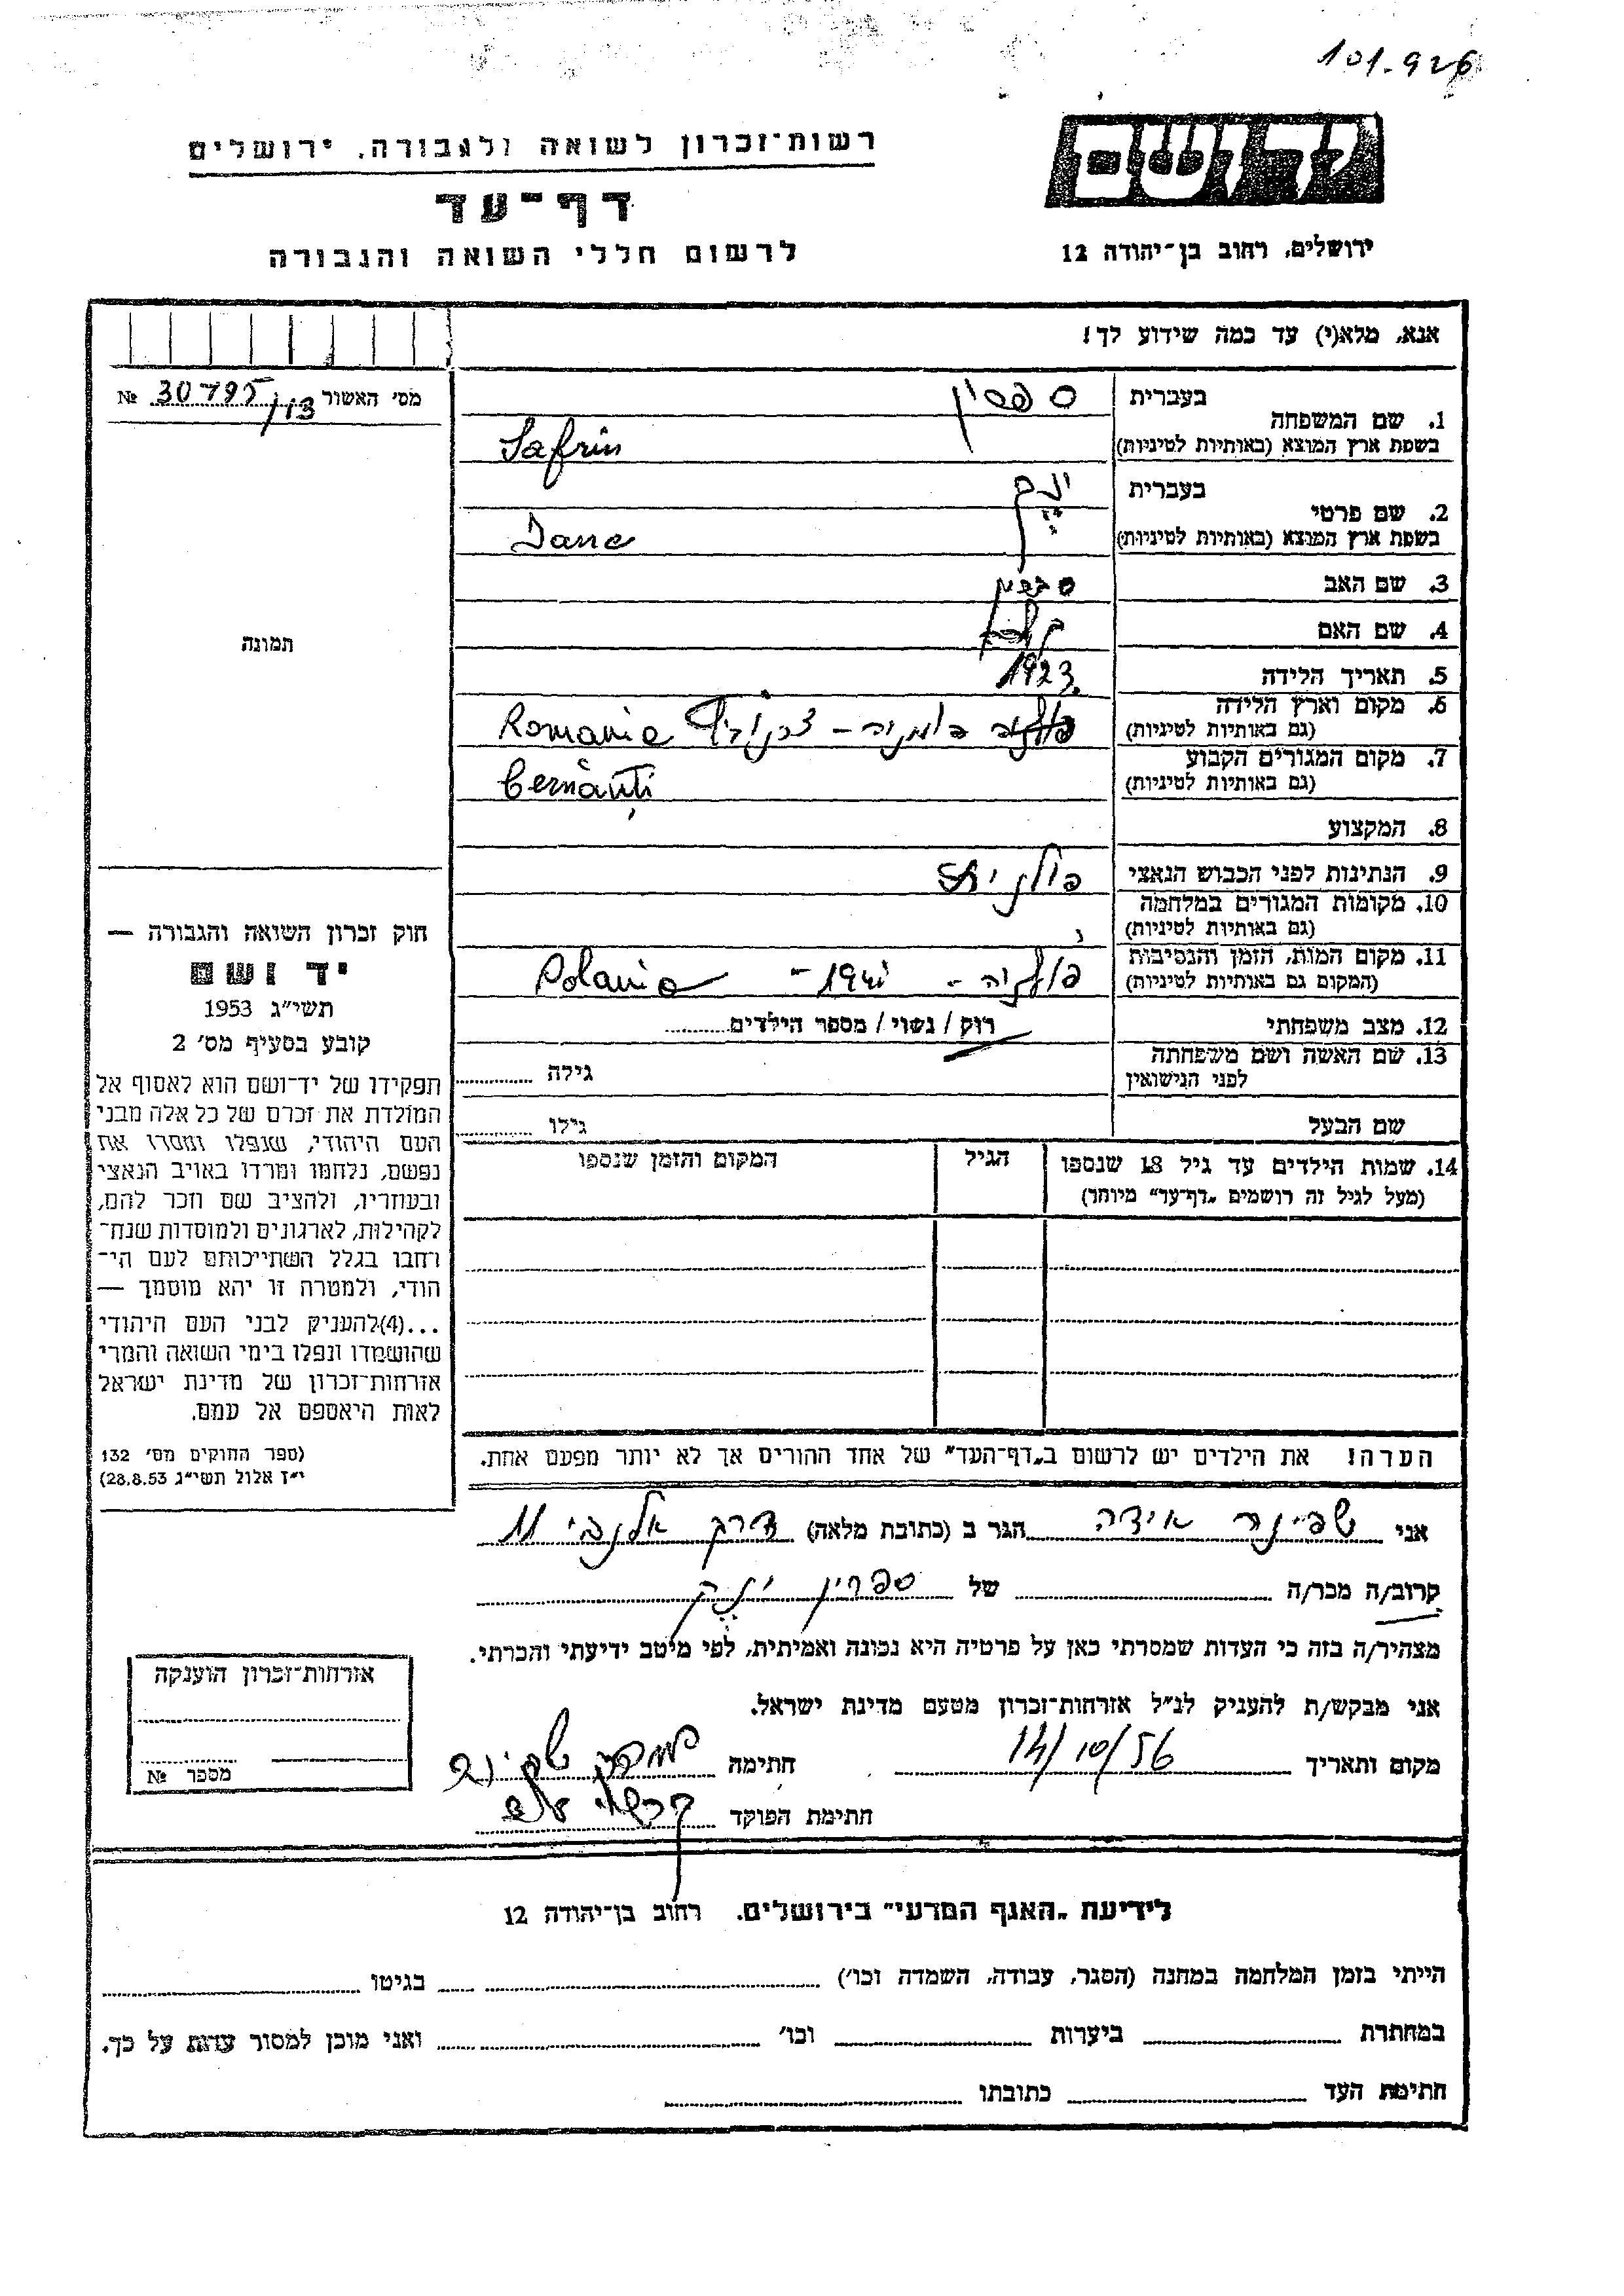 101.926
יד ושם
ירושלים, רחוב בן־יהודה 12
רשות־זכרון לשואה ולגבורה, ירושלים
דף־עד
לרשום חללי השואה והגבורה
אנא, מלא(י) עד כמה שידוע לך!
מס' האשור № 30795
1. שם המשפחה
בעברית ספרין
בשפת ארץ המוצא (באותיות לטיניות) Safrin
2. שם פרטי
בעברית
בשפת ארץ המוצא (באותיות לטיניות)
3. שם האב
4. שם האם
5. תאריך הלידה 1923
6. מקום וארץ הלידה
(גם באותיות לטיניות) רומניה - Romania
7. מקום המגורים הקבוע
(גם באותיות לטיניות) Cernăuți
8. המקצוע
9. הנתינות לפני הכבוש הנאצי פולנית
10. מקומות המגורים במלחמה
(גם באותיות לטיניות)
11. מקום המות, הזמן והנסיבות
(המקום גם באותיות לטיניות) פולניה - 1941 - Polania
12. מצב משפחתי רוק / נשוי / מספר הילדים
13. שם האשה ושם משפחתה
לפני הנישואין גילה
שם הבעל גילו
14. שמות הילדים עד גיל 18 שנספו
(מעל לגיל זה רושמים „דף־עד" מיוחד)
הגיל
המקום והזמן שנספו
תמונה
חוק זכרון השואה והגבורה —
יד ושם
תשי"ג 1953
קובע בסעיף מס' 2
תפקידו של יד־ושם הוא לאסוף אל
המולדת את זכרם של כל אלה מבני
העם היהודי, שנפלו ומסרו את
נפשם, נלחמו ומרדו באויב הנאצי
ובעוזריו, ולהציב שם וזכר להם,
לקהילות, לארגונים ולמוסדות שנח־
רחבו בגלל השתייכותם לעם הי־
הודי, ולמטרה זו יהא מוסמך —
...(4)להעניק לבני העם היהודי
שהושמדו ונפלו בימי השואה והמרי
אזרחות־זכרון של מדינת ישראל
לאות היאספם אל עמם.
(ספר החוקים מס' 132
י"ז אלול תשי"ג 28.8.53)
הערה! את הילדים יש לרשום ב„דף־העד" של אחד ההורים אך לא יותר מפעם אחת.
אני שפינר אידה הגר ב (כתובת מלאה) דרך אלנבי 11
קרוב/ה מכר/ה של ספרין
מצהיר/ה בזה כי העדות שמסרתי כאן על פרטיה היא נכונה ואמיתית, לפי מיטב ידיעתי והכרתי.
אני מבקש/ת להעניק לנ"ל אזרחות־זכרון מטעם מדינת ישראל.
מקום ותאריך 14/10/56 חתימה
חתימת הפוקד
אזרחות־זכרון הוענקה
מספר №
לידיעת „האגף המדעי" בירושלים. רחוב בן־יהודה 12
הייתי בזמן המלחמה במחנה (הסגר, עבודה, השמדה וכו') בגיטו
במחתרת ביערות וכו' ואני מוכן למסור עדות על כך.
חתימת העד כתובתו